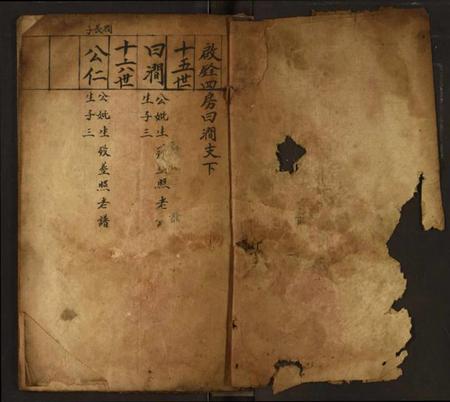 啟銓四房曰澗支下
十五世
曰澗
公妣生 照老
生子三
十六世
澗長子
公仁
公妣生歿葬照老譜
生子三